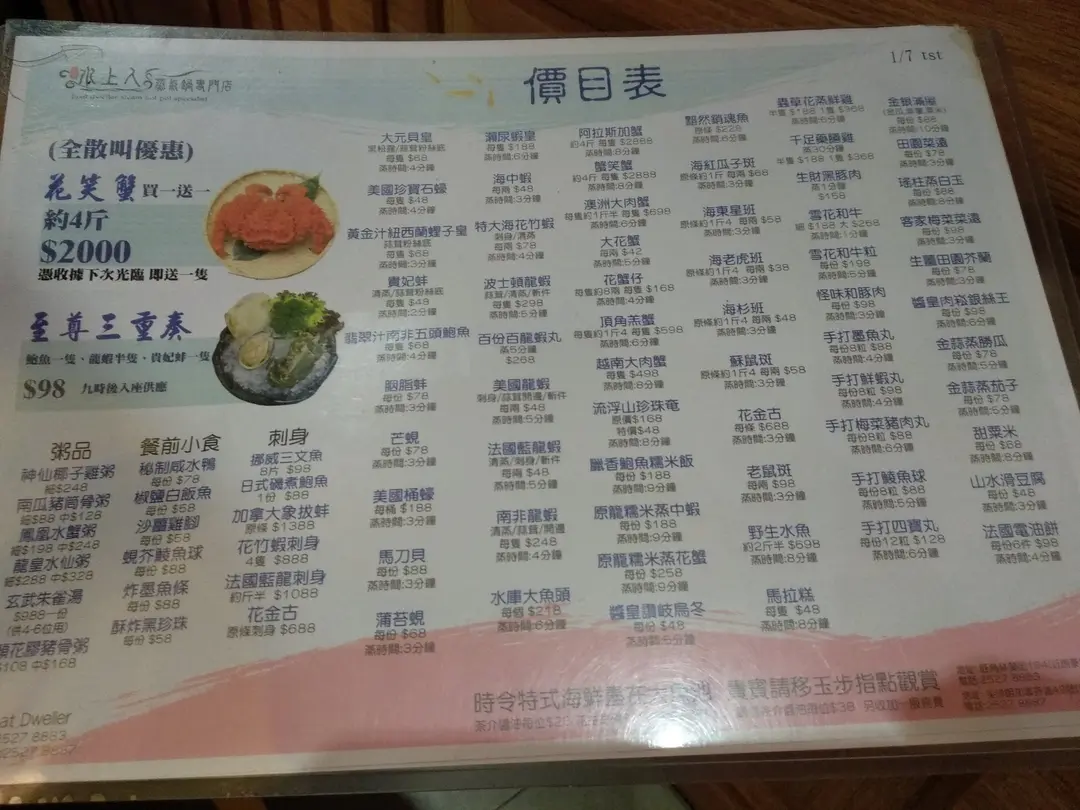 水上人
蒸氣鍋專門店
價目表
1/7 tst
(全散叫優惠)
花笑蟹 買一送一
約4斤
$2000
憑收據下次光臨 即送一隻
至尊三重奏
鮑魚一隻、龍蝦半隻、貴妃蚌一隻
$98 九時後入座供應
粥品
神仙椰子雞粥
細$248
南瓜豬筒骨粥
細$98 中$128
鳳凰水蟹粥
細$198 中$248
龍皇水仙粥
細$288 中$328
玄武朱雀湯
$988一份
(供4-6位用)
花膠豬骨粥
$108 中$168
餐前小食
秘制咸水鴨
每份 $78
椒鹽白飯魚
每份 $58
沙薑雞腳
每份 $58
蜆芥鯪魚球
每份 $88
炸墨魚條
每份 $88
酥炸黑珍珠
每份 $58
刺身
挪威三文魚
8片 $98
日式磯煮鮑魚
1份 $88
加拿大象拔蚌
原條 $1388
花竹蝦刺身
4隻 $888
法國藍龍刺身
約斤半 $1088
花金古
原條刺身 $688
大元貝皇
黑椒醬/蒜茸粉絲底
每隻 $68
蒸時間:4分鐘
美國珍寶石蠔
每隻 $48
蒸時間:4分鐘
黃金汁紐西蘭鯉子皇
蒜茸粉絲底
每隻 $68
蒸時間:3分鐘
貴妃蚌
清蒸/蒜茸粉絲底
每隻 $48
蒸時間:2分鐘
翡翠汁南非五頭鮑魚
每隻 $68
蒸時間:4分鐘
胭脂蚌
每份 $78
蒸時間:3分鐘
芒蜆
每份 $78
蒸時間:3分鐘
美國桶蠔
每桶 $188
蒸時間:3分鐘
馬刀貝
每份 $88
蒸時間:3分鐘
蒲苔蜆
每份 $68
蒸時間:3分鐘
瀨尿蝦皇
每隻 $188
蒸時間:6分鐘
海中蝦
每兩 $48
蒸時間:3分鐘
特大海花竹蝦
刺身/清蒸
每兩 $78
蒸時間:4分鐘
波士頓龍蝦
蒜茸/清蒸/斬件
每隻 $298
蒸時間:5分鐘
百份百龍蝦丸
蒸5分鐘
$268
美國龍蝦
刺身/蒜茸開邊/斬件
每兩 $48
蒸時間:5分鐘
法國藍龍蝦
清蒸/刺身/斬件
每兩 $48
蒸時間:5分鐘
南非龍蝦
清蒸/蒜茸/開邊
每隻 $248
蒸時間:4分鐘
水庫大魚頭
每個 $218
蒸時間:6分鐘
阿拉斯加蟹
約4斤 每隻 $2888
蒸時間:8分鐘
蟹笑蟹
約4斤 每隻 $2889
蒸時間:8分鐘
澳洲大肉蟹
每隻約1斤半 每隻 $698
蒸時間:6分鐘
大花蟹
每兩 $42
蒸時間:5分鐘
花蟹仔
每隻約8兩 每隻 $168
蒸時間:4分鐘
頂角羔蟹
每隻約1斤4 每隻 $598
蒸時間:6分鐘
越南大肉蟹
每隻 $498
蒸時間:8分鐘
流浮山珍珠奄
原價$168
特價$48
蒸時間:8分鐘
臘香鮑魚糯米飯
每份 $188
蒸時間:9分鐘
原龍糯米蒸中蝦
每份 $188
蒸時間:9分鐘
原龍糯米蒸花蟹
每份 $258
蒸時間:9分鐘
醬皇讚岐烏冬
每份 $48
蒸時間:5分鐘
黯然銷魂魚
原條 $228
蒸時間:8分鐘
海紅瓜子斑
原條約1斤 每兩 $68
蒸時間:3分鐘
海東星班
原條約1斤4 每兩 $58
蒸時間:3分鐘
海老虎班
原條約1斤4 每兩 $38
蒸時間:3分鐘
海杉班
原條約1斤4 每兩 $48
蒸時間:3分鐘
蘇鼠斑
原條約1斤4 每兩 $58
蒸時間:3分鐘
花金古
每條 $688
蒸時間:3分鐘
老鼠斑
每兩 $98
蒸時間:3分鐘
野生水魚
約2斤半 $698
蒸時間:8分鐘
馬拉糕
每隻 $48
蒸時間:8分鐘
蟲草花蒸鮮雞
半隻 $188 1隻 $368
蒸時間:6分鐘
千足藥膳雞
蒸30分鐘
半隻 $188 1隻 $368
生財黑豚肉
蒸1分鐘
$158
雪花和牛
細 $188 大 $268
蒸時間:1分鐘
雪花和牛粒
每份 $198
蒸時間:5分鐘
怪味和豚肉
每份 $98
蒸時間:3分鐘
手打墨魚丸
每份8粒 $88
蒸時間:4分鐘
手打鮮蝦丸
每份8粒 $98
蒸時間:4分鐘
手打梅菜豬肉丸
每份8粒 $88
蒸時間:6分鐘
手打鯪魚球
每份8粒 $88
蒸時間:5分鐘
手打四寶丸
每份12粒 $128
蒸時間:6分鐘
金銀滿屋
每份 $88
蒸時間:10分鐘
田園菜遠
每份 $78
蒸時間:3分鐘
瑤柱蒸白玉
每份 $88
蒸時間:8分鐘
客家梅菜菜遠
每份 $98
蒸時間:3分鐘
生曬田園芥蘭
每份 $78
蒸時間:3分鐘
醬皇肉崧銀絲王
每份 $98
蒸時間:6分鐘
金蒜蒸勝瓜
每份 $78
蒸時間:5分鐘
金蒜蒸茄子
每份 $78
蒸時間:5分鐘
甜粟米
每份 $68
蒸時間:8分鐘
山水滑豆腐
每份 $48
蒸時間:3分鐘
法國電油餅
每份6件 $98
蒸時間:4分鐘
時令特式海鮮盡在 貴賓請移玉步指點觀賞
茶介醬油每位$28 $38 另收加一服務費
at Dweller
2527 8883
2527 8887